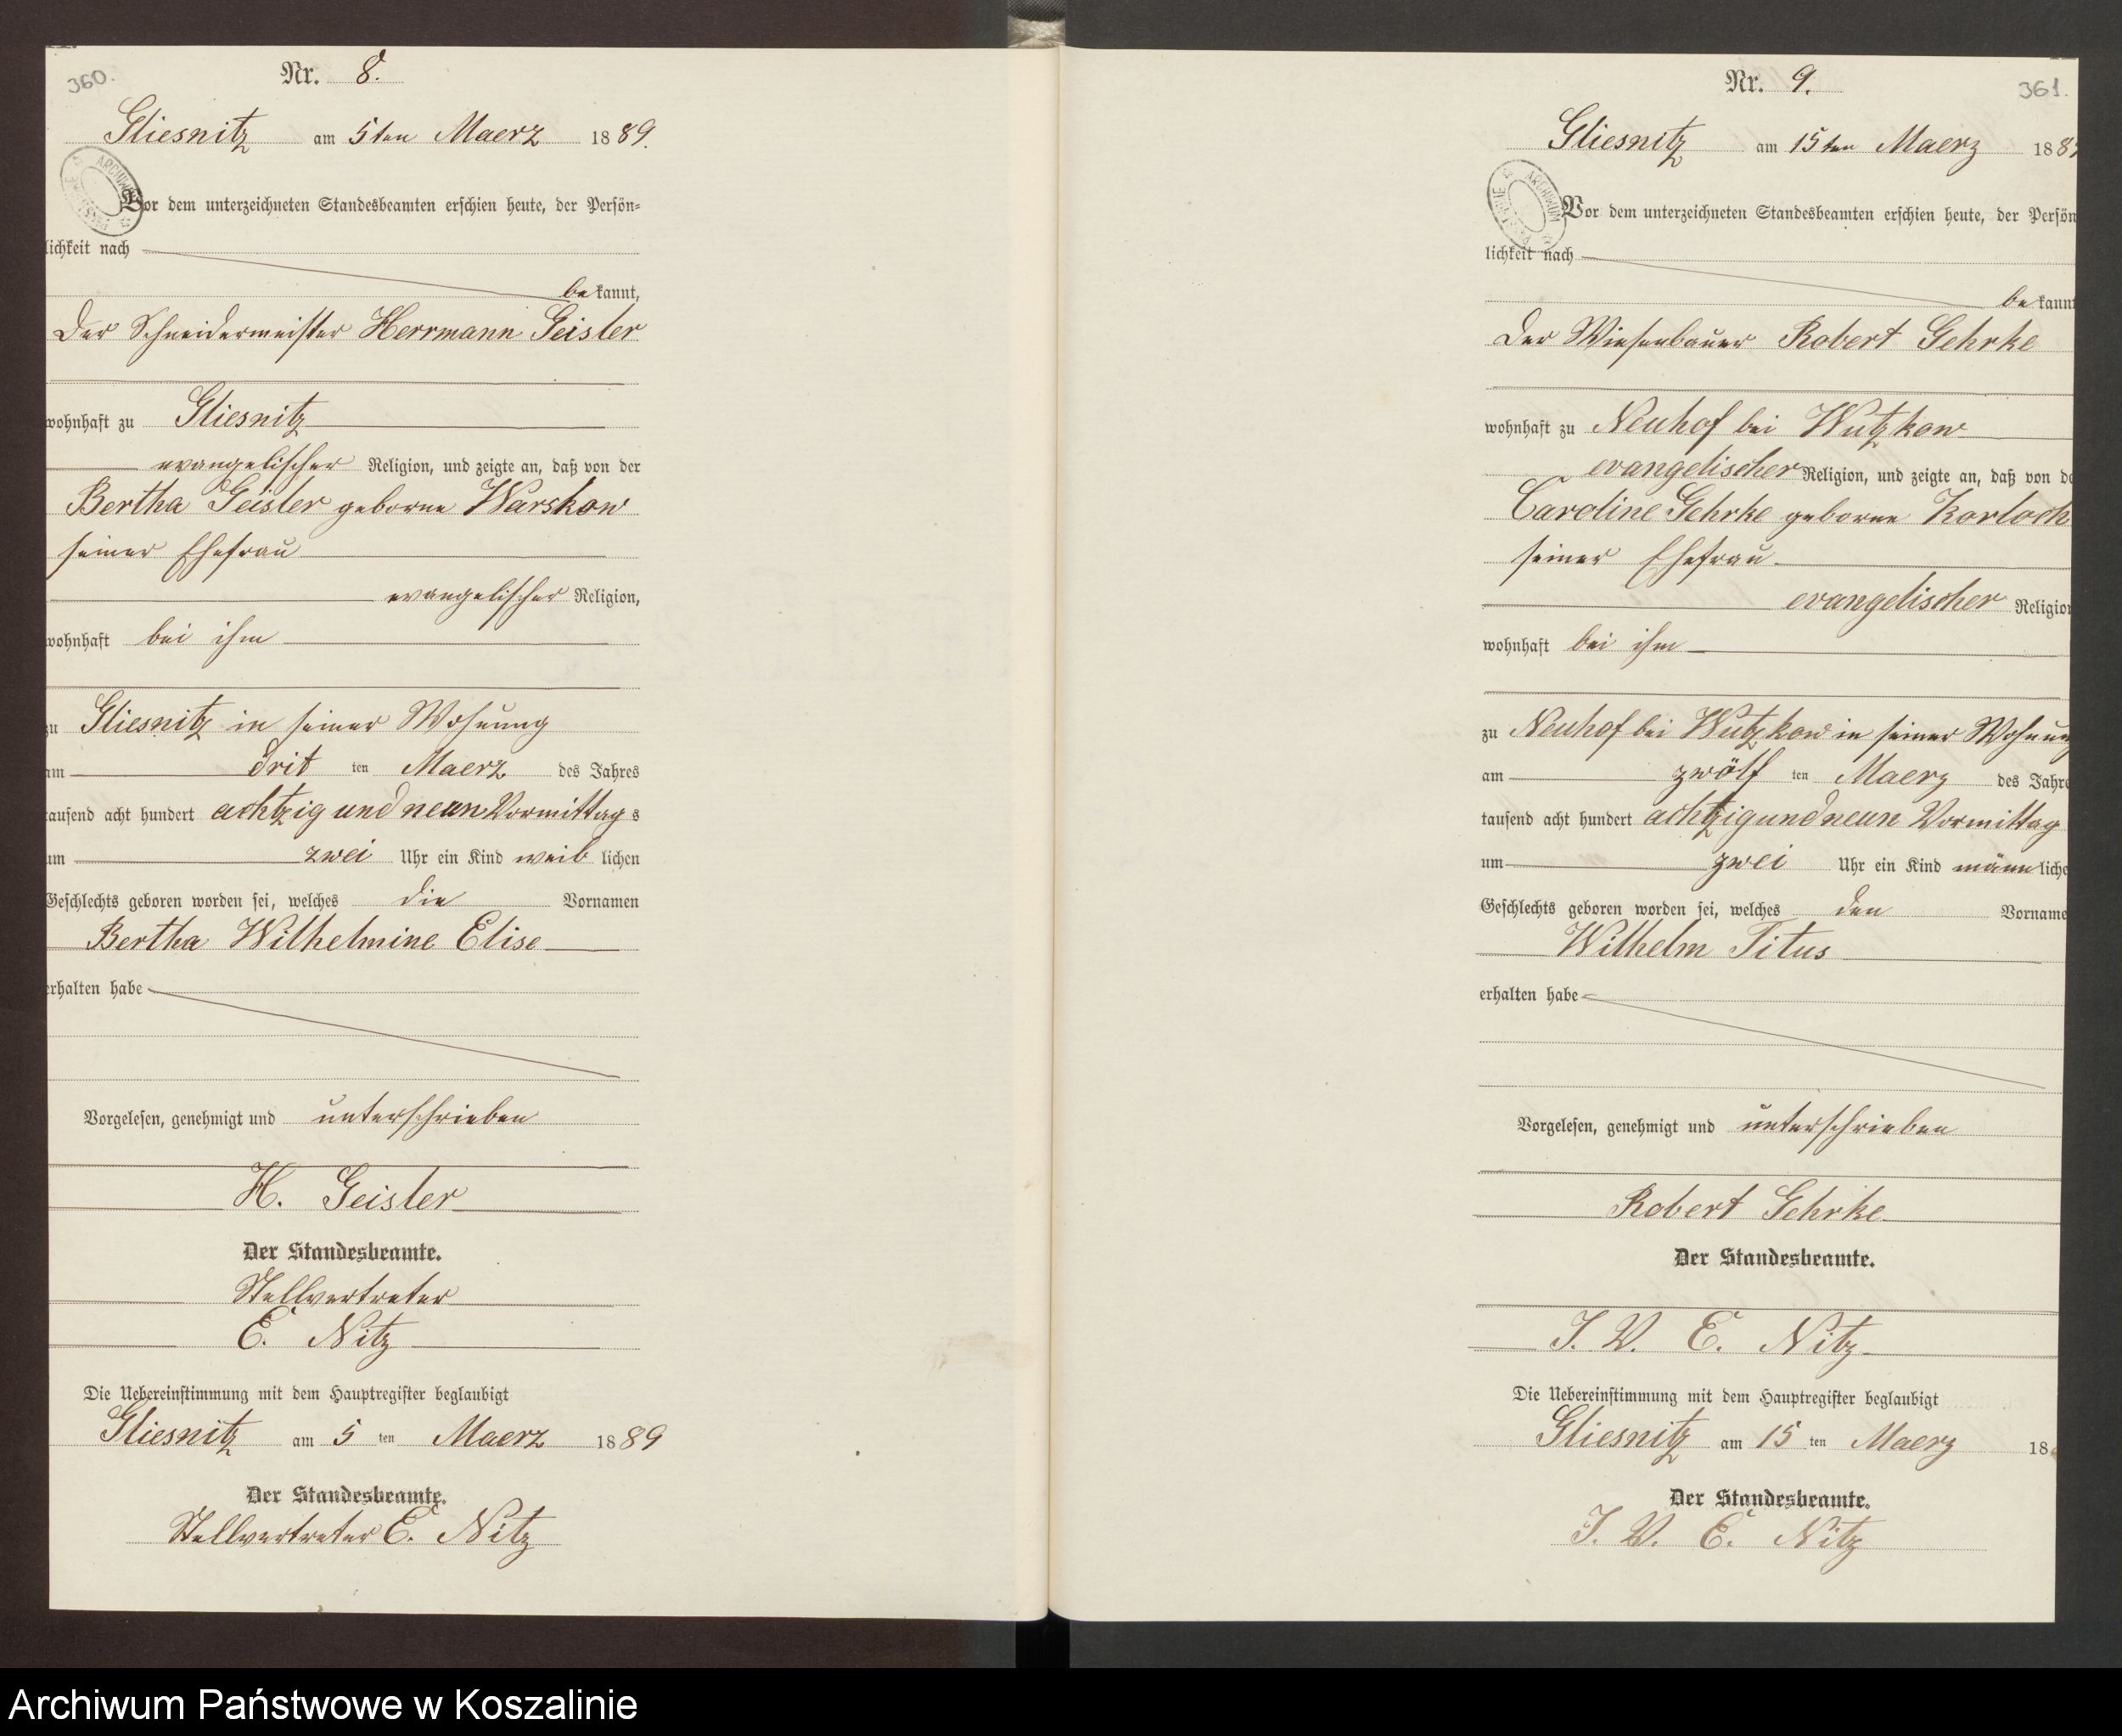 360.
Nr. 8.
Gliesnitz am 5ten Maerz 1889.
Vor dem unterzeichneten Standesbeamten erschien heute, der Persön=
lichkeit nach
bekannt,
der Schneidermeister Herrmann Geisler
wohnhaft zu Gliesnitz
evangelischer Religion, und zeigte an, daß von der
Bertha Geisler geborne Warskow
seiner Ehefrau
evangelischer Religion,
wohnhaft bei ihm
zu Gliesnitz in seiner Wohnung
am drit ten Maerz des Jahres
tausend acht hundert achtzig und neun Vormittags
um zwei Uhr ein Kind weiblichen
Geschlechts geboren worden sei, welches die Vornamen
Bertha Wilhelmine Elise
erhalten habe
Vorgelesen, genehmigt und unterschrieben
H. Geisler
Der Standesbeamte.
Stellvertreter
E. Nitz
Die Uebereinstimmung mit dem Hauptregister beglaubigt
Gliesnitz am 5 ten Maerz 1889
Der Standesbeamte.
Stellvertreter E. Nitz
361.
Nr. 9.
Gliesnitz am 15ten Maerz 1889
Vor dem unterzeichneten Standesbeamten erschien heute, der Persön
lichkeit nach
bekannt
der Wiesenbauer Robert Gehrke
wohnhaft zu Neuhof bei Wutzkow
evangelischer Religion, und zeigte an, daß von de
Caroline Gehrke geborne
seiner Ehefrau
evangelischer Religion
wohnhaft bei ihm
zu Neuhof bei Wutzkow in seiner Wohnung
am zwölf ten Maerz des Jahre
tausend acht hundert achtzig und neun Vormittag
um zwei Uhr ein Kind männliche
Geschlechts geboren worden sei, welches den Vorname
Wilhelm Titus
erhalten habe
Vorgelesen, genehmigt und unterschrieben
Robert Gehrke
Der Standesbeamte.
J. V. E. Nitz
Die Uebereinstimmung mit dem Hauptregister beglaubigt
Gliesnitz am 15 ten Maerz 18
Der Standesbeamte.
J. V. E. Nitz
Archiwum Państwowe w Koszalinie